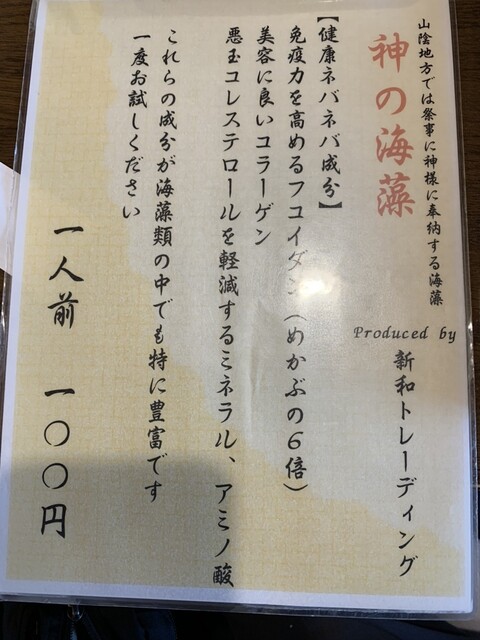 山陰地方では祭事に神様に奉納する海藻
神の海藻
Produced by
新和トレーディング
【健康ネバネバ成分】
免疫力を高めるフコイダン（めかぶの6倍）
美容に良いコラーゲン
悪玉コレステロールを軽減するミネラル、アミノ酸
これらの成分が海藻類の中でも特に豊富です
一度お試しください
一人前　一〇〇円